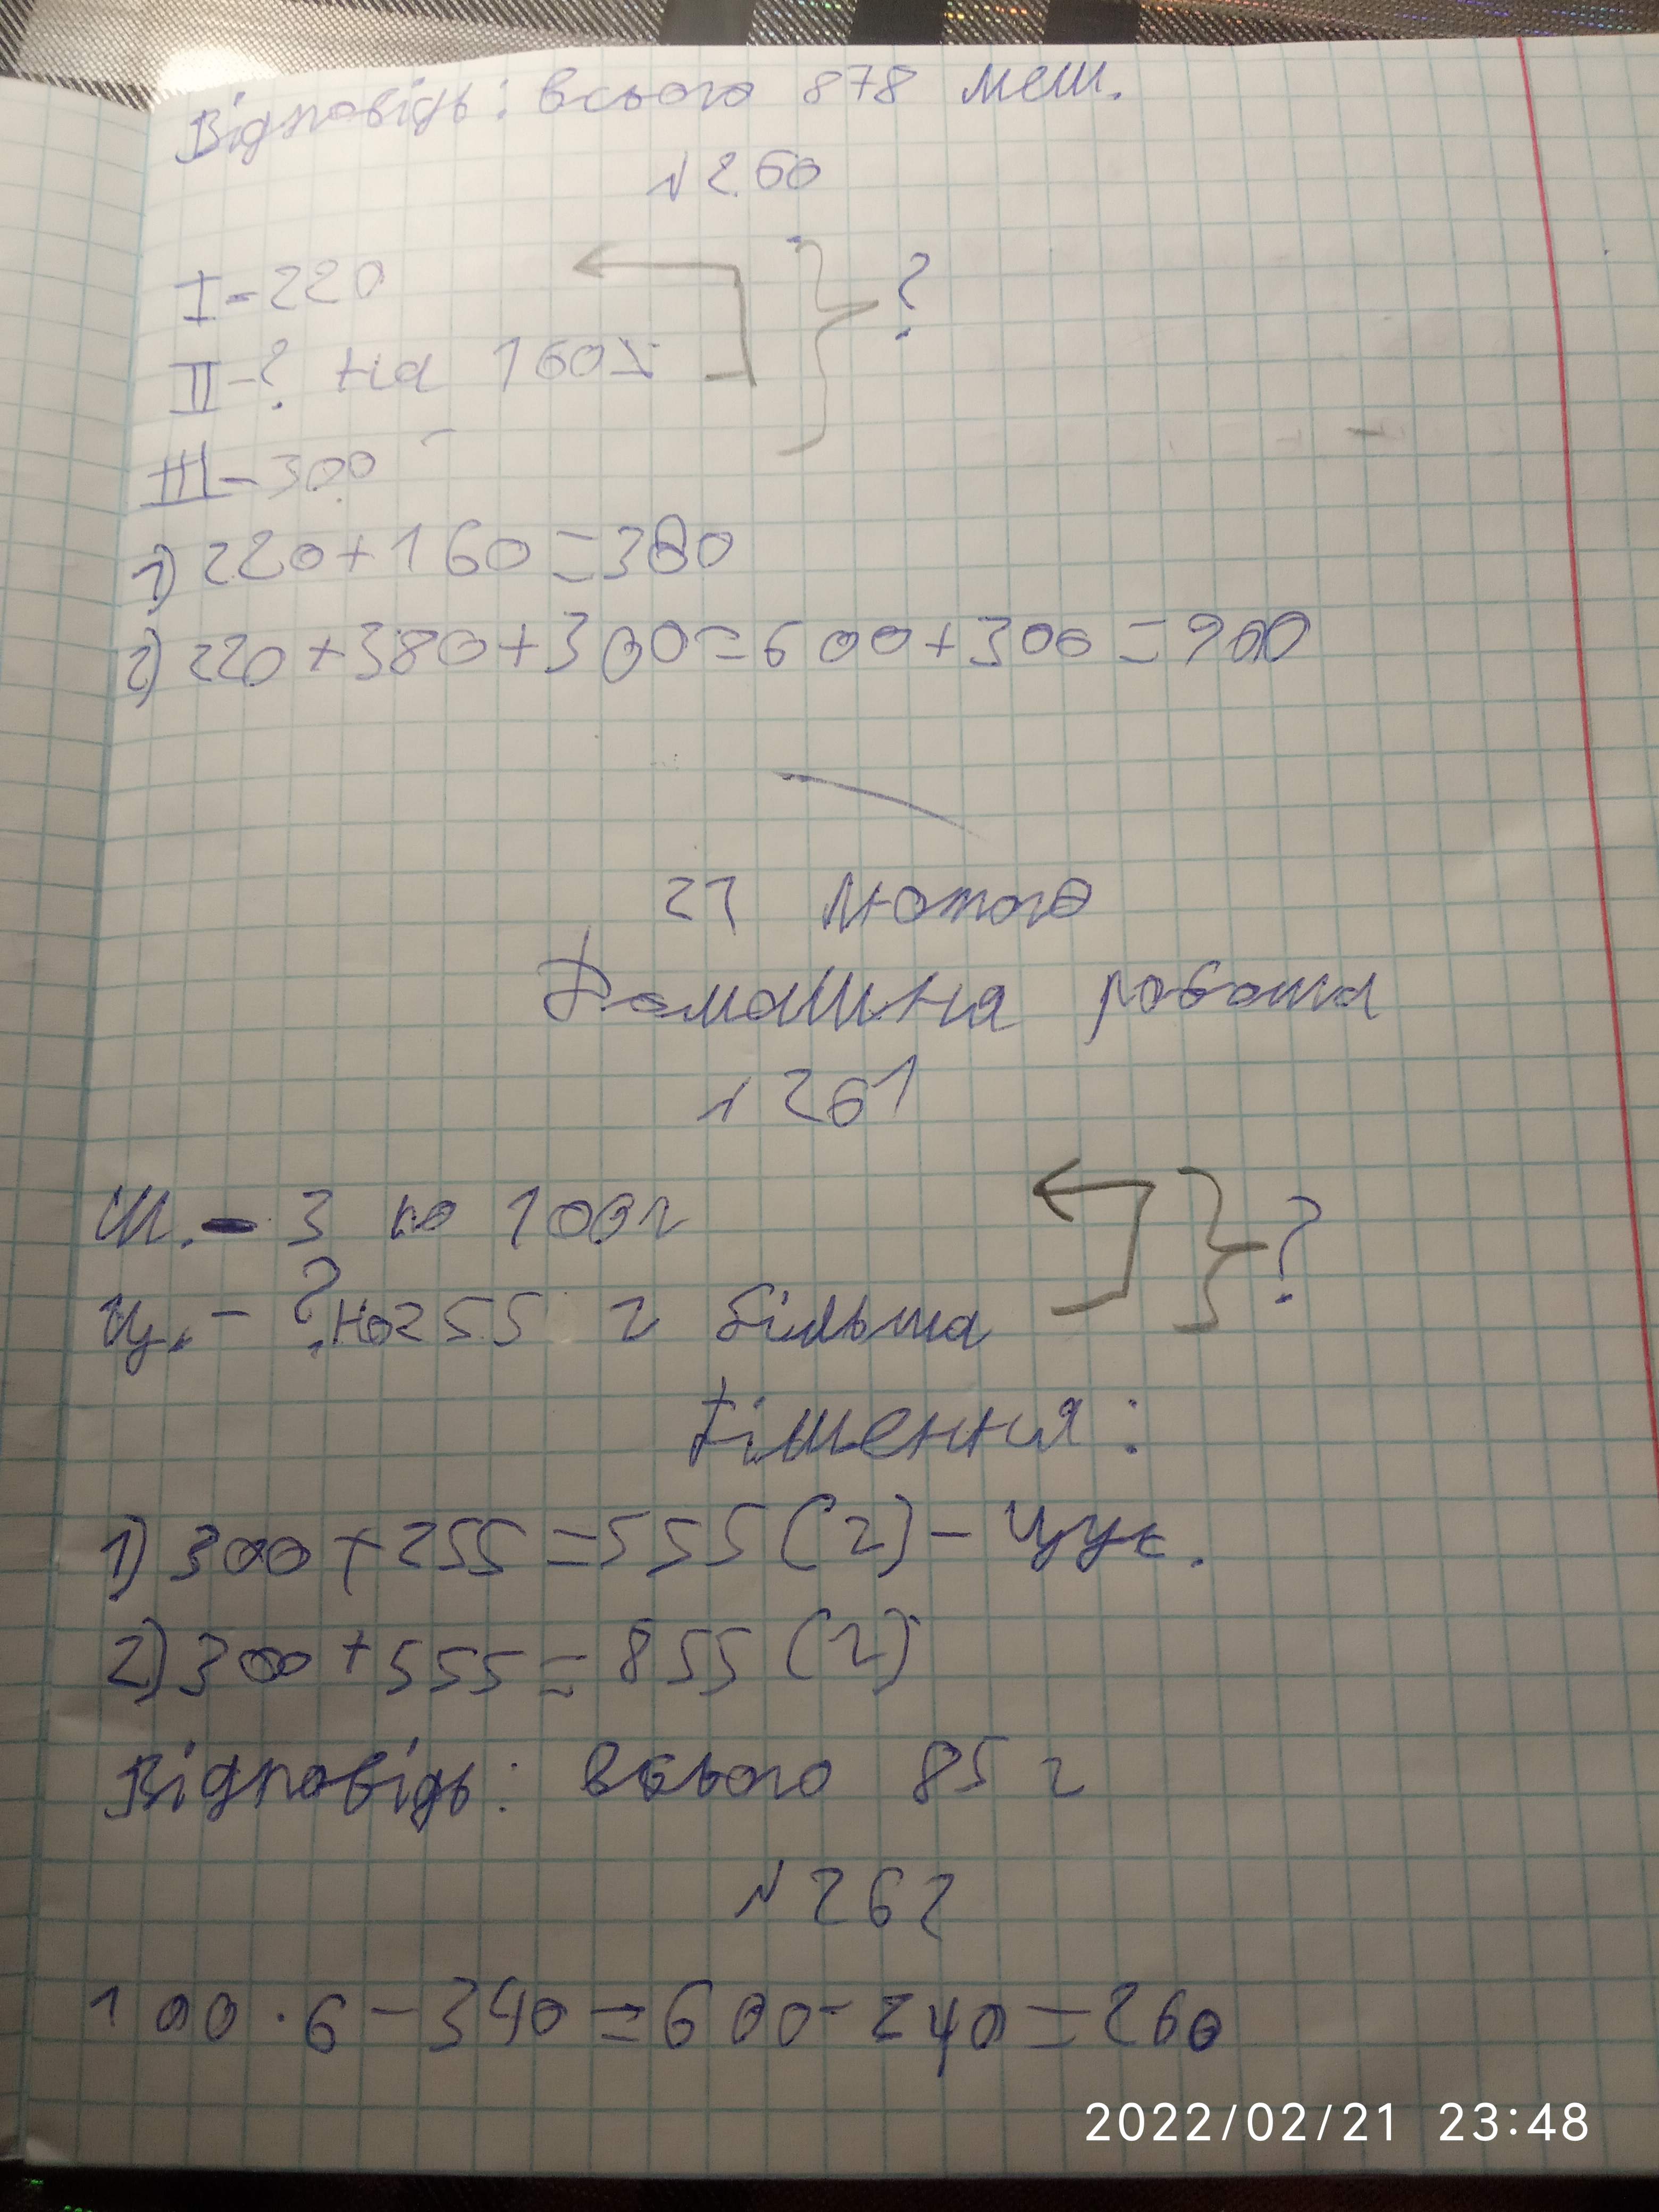 Відповідь: всього 878 меш.
№260
I-220
II-? на 160
III-300
1) 220+160=380
2) 220+380+300=600+300=900
21 лютого
Домашня робота
№261
Ш.- 3 по 100г
Ц.- ? на 255 г більша
Рішення:
1) 300+255=555(г)- цук.
2) 300+555=855(г)
Відповідь: всього 85 г
№262
100·6-340=600-240=260
?
?
2022/02/21 23:48